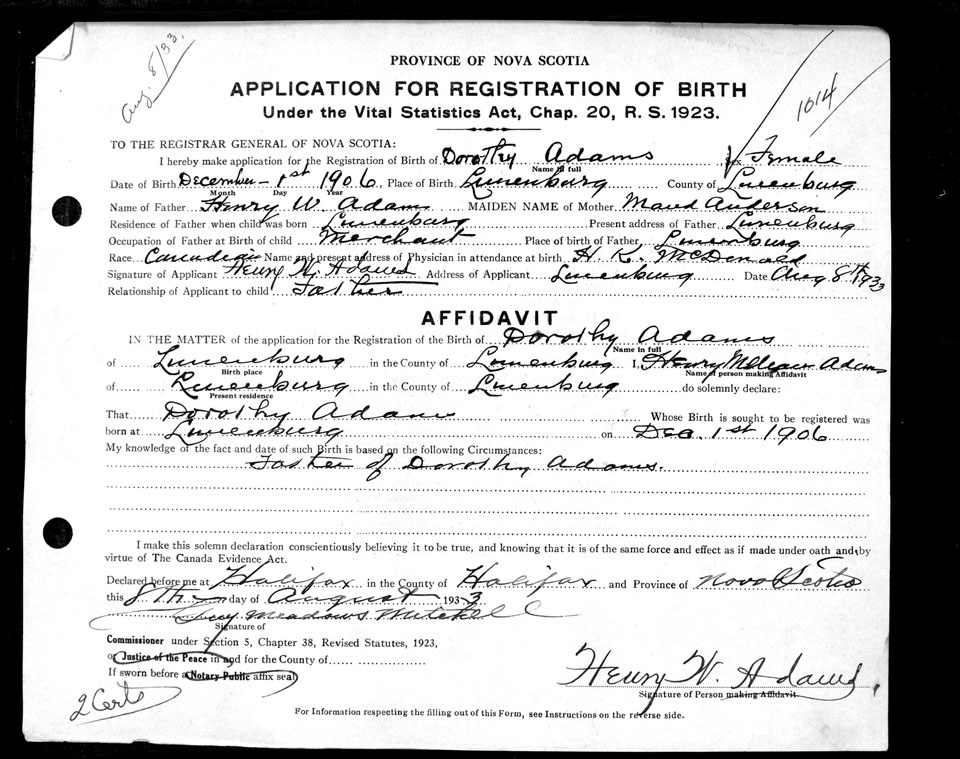 Aug. 8/33.
1014
PROVINCE OF NOVA SCOTIA
APPLICATION FOR REGISTRATION OF BIRTH
Under the Vital Statistics Act, Chap. 20, R. S. 1923.
TO THE REGISTRAR GENERAL OF NOVA SCOTIA:
I hereby make application for the Registration of Birth of Dorothy Adams Sex Female
Name in full
Date of Birth December - 1st 1906, Place of Birth Lunenburg County of Lunenburg
Month Day Year
Name of Father Henry W. Adams MAIDEN NAME of Mother Maud Anderson
Residence of Father when child was born Lunenburg Present address of Father Lunenburg
Occupation of Father at Birth of child Merchant Place of birth of Father Lunenburg
Race Canadian Name and present address of Physician in attendance at birth H. K. McDonald
Signature of Applicant Henry W. Adams Address of Applicant Lunenburg Date Aug 8th 1933
Relationship of Applicant to child Father
AFFIDAVIT
IN THE MATTER of the application for the Registration of the Birth of Dorothy Adams
Name in full
of Lunenburg in the County of Lunenburg I, Henry William Adams
Birth place Name of person making Affidavit
of Lunenburg in the County of Lunenburg do solemnly declare:
Present residence
That Dorothy Adams Whose Birth is sought to be registered was
born at Lunenburg on Dec. 1st 1906
My knowledge of the fact and date of such Birth is based on the following Circumstances:
Father of Dorothy Adams.
I make this solemn declaration conscientiously believing it to be true, and knowing that it is of the same force and effect as if made under oath and by
virtue of The Canada Evidence Act.
Declared before me at Halifax in the County of Halifax and Province of Nova Scotia
this 8th day of August 1933
Guy Meadows Mitchell
Signature of
Commissioner under Section 5, Chapter 38, Revised Statutes, 1923,
or Justice of the Peace in and for the County of
If sworn before a Notary Public affix seal
Henry W. Adams.
Signature of Person making Affidavit.
2 Certs
For Information respecting the filling out of this Form, see Instructions on the reverse side.